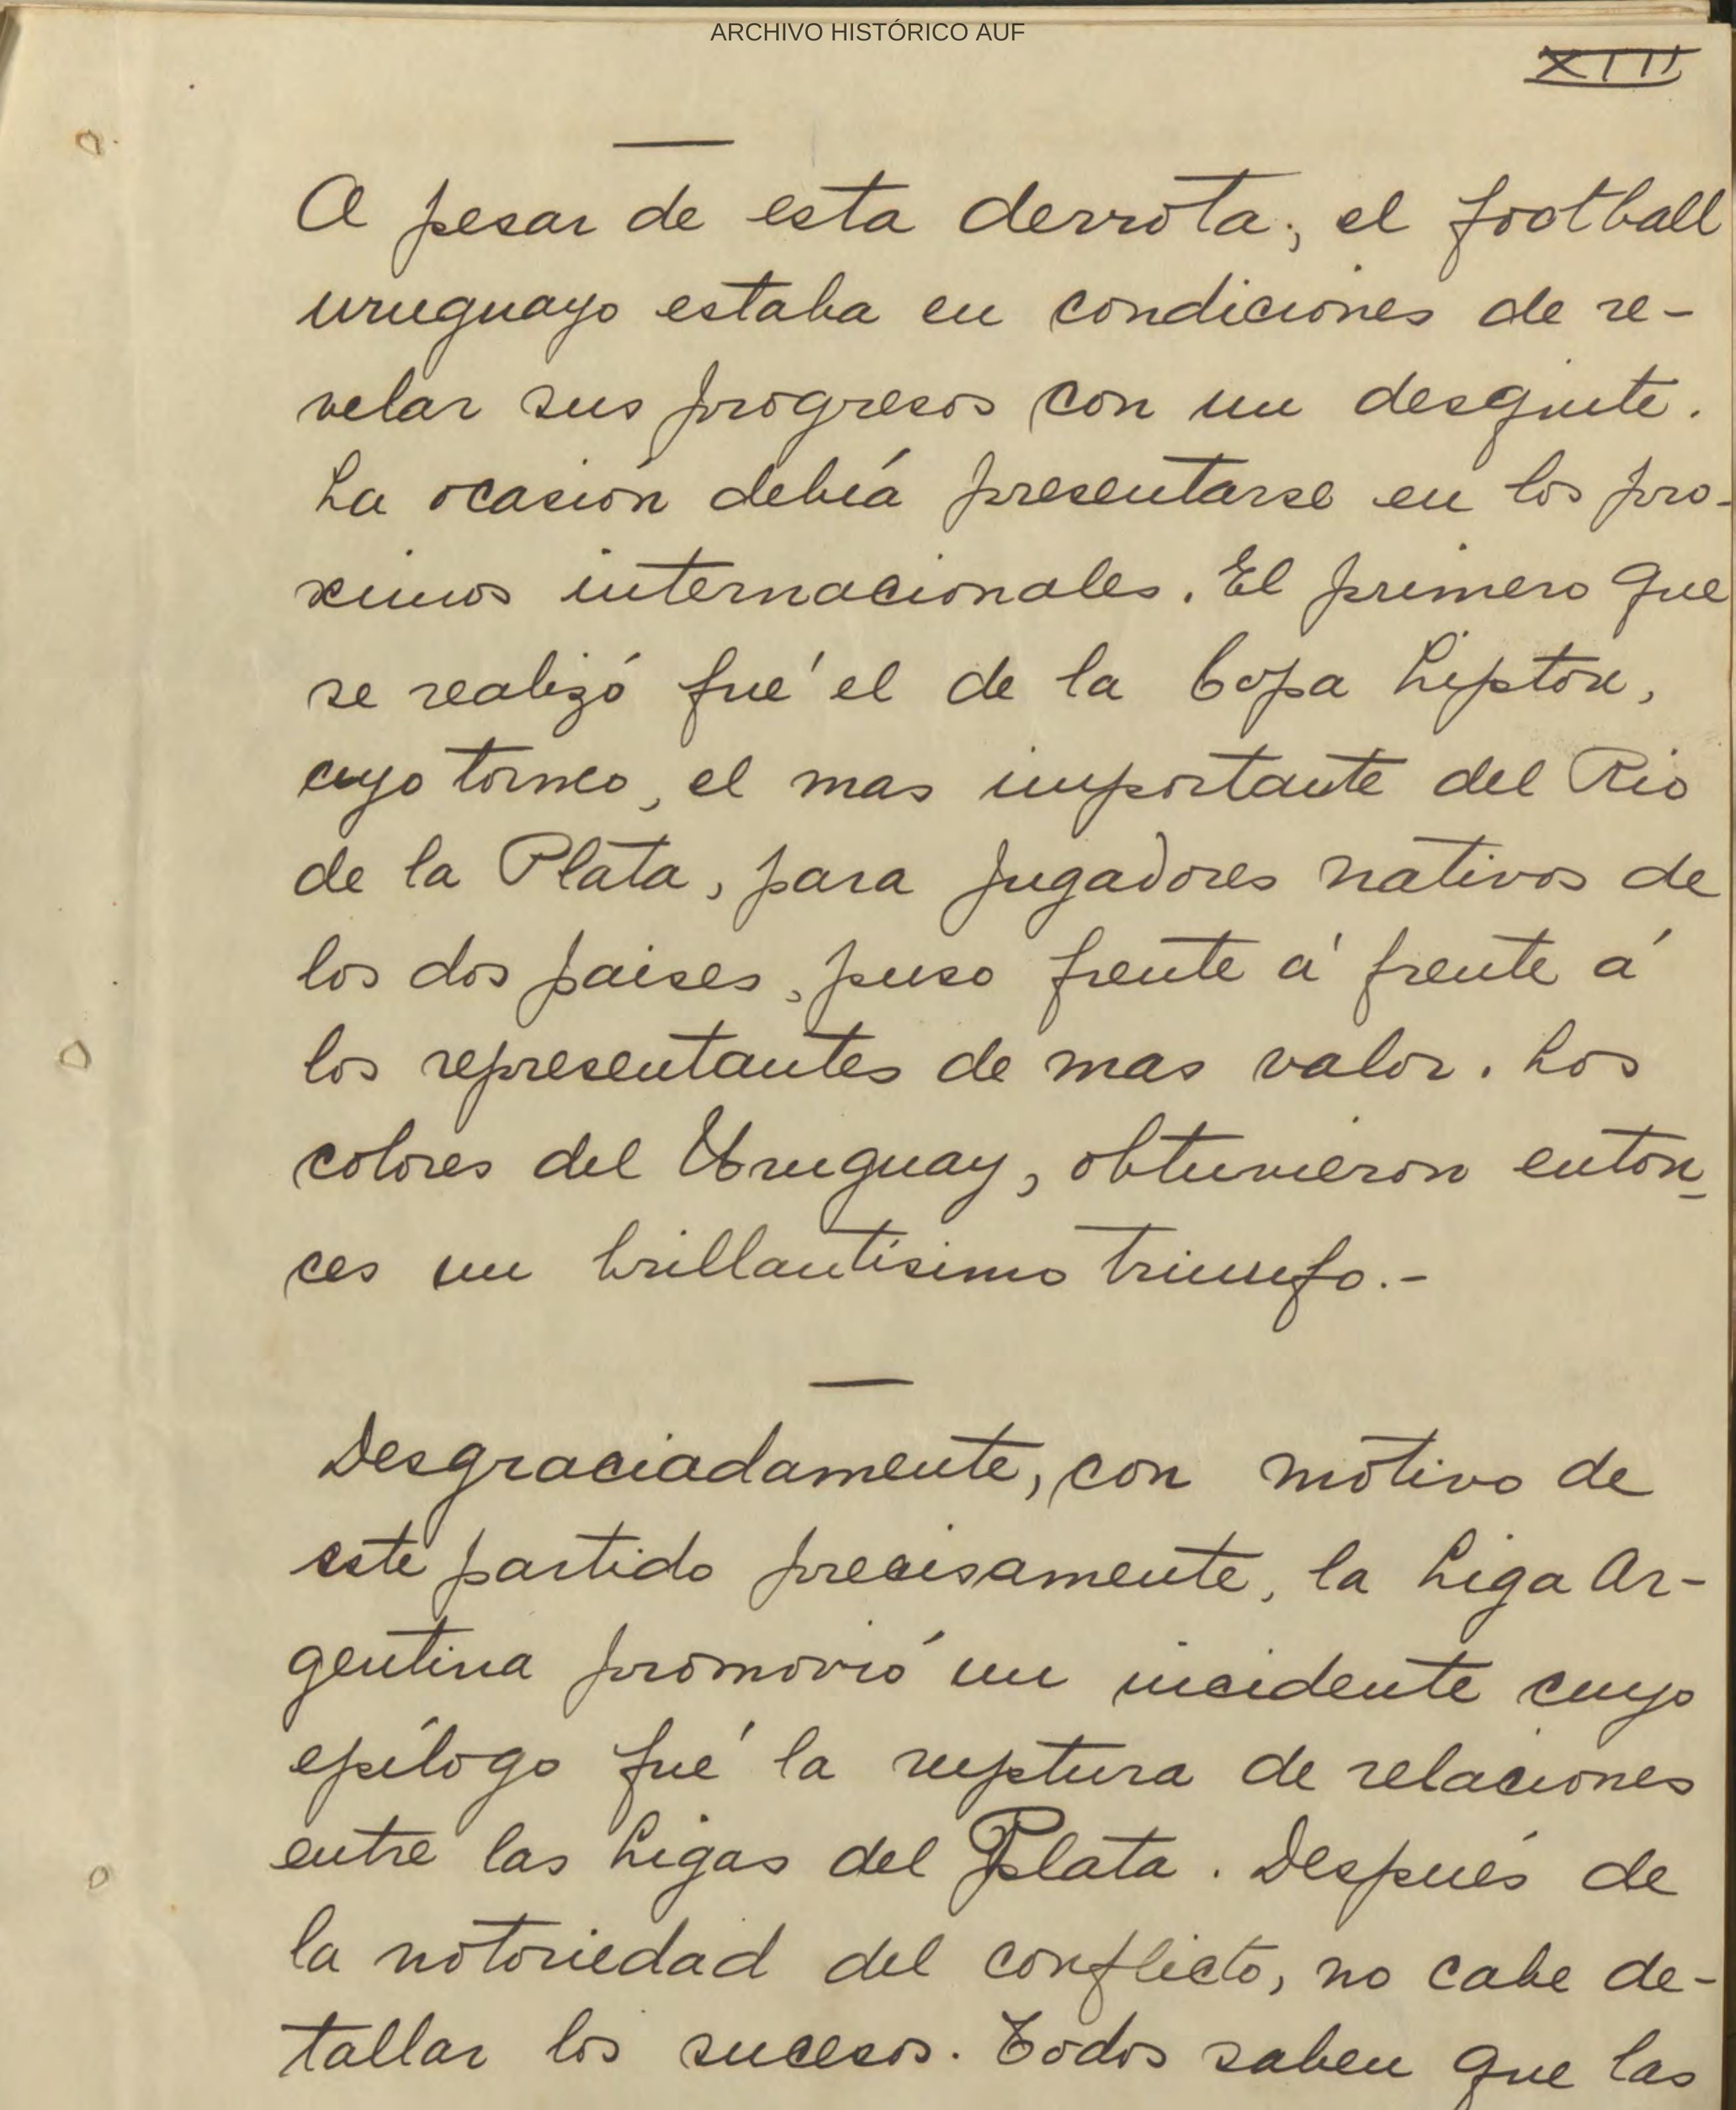 ARCHIVO HISTÓRICO AUF
XIII
A pesar de esta derrota, el football
uruguayo estaba en condiciones de re-
velar sus progresos con un desquite.
La ocasión debía presentarse en los pro-
ximos internacionales. El primero que
se realizó fué el de la Copa Lipton,
cuyo torneo, el mas importante del Rio
de la Plata, para jugadores nativos de
los dos paises, puso frente á frente á
los representantes de mas valor. Los
colores del Uruguay, obtuvieron enton-
ces un brillantísimo triunfo.-
Desgraciadamente, con motivo de
este partido precisamente, la Liga Ar-
gentina promovió un incidente cuyo
epílogo fué la ruptura de relaciones
entre las Ligas del Plata. Después de
la notoriedad del conflicto, no cabe de-
tallar los sucesos. Todos saben que las